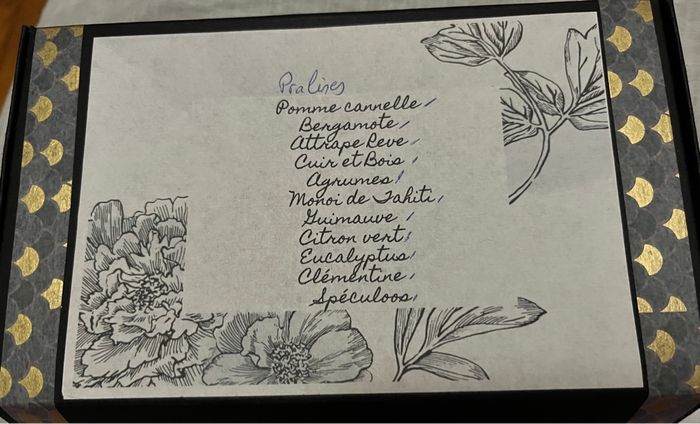 Pralines
Pomme cannelle
Bergamote
Attrape Reve
Cuir et Bois
Agrumes
Monoi de Tahiti
Guimauve
Citron vert
Eucalyptus
Clémentine
Spéculoos